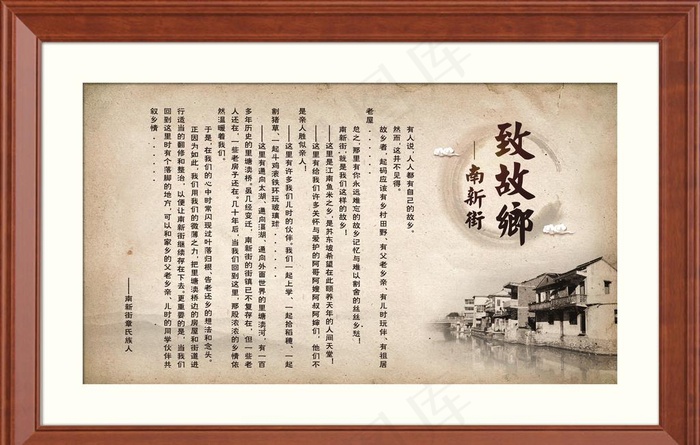 致故鄉
——南新街
有人说，人人都有自己的故乡。
然而，这并不见得。
故乡者，起码应该有乡村田野、有父老乡亲、有儿时玩伴、有祖居
老屋......
总之，那里有你永远难忘的故乡记忆与难以割舍的丝丝乡愁！
南新街，就是我们这样的故乡！
——这里是江南鱼米之乡，是苏东坡希望在此颐养天年的人间天堂！
——这里有给我们许多关怀与爱护的阿哥阿嫂阿叔阿婶们，他们不
是亲人胜似亲人！
——这里有许多我们儿时的伙伴。我们一起上学、一起拾稻穗、一起
割猪草、一起斗鸡滚铁环玩玻璃球......
——这里有通向太湖、通向滆湖、通向外面世界的里塘渎河，有一百
多年历史的里塘渎桥。虽几经变迁，南新街的街镇已不复存在，但一些老
人还在，一些老房子还在。几十年后，当我们回到这里，那股浓浓的乡情依
然温暖着我们。
于是，在我们的心中时常闪现过叶落归根、告老还乡的想法和念头。
正因为如此，我们用我们的微薄之力，把里塘渎桥边的房屋和街道进
行适当的翻修和整治，以便让南新街继续存在下去。更重要的是，当我们
回到这里时有个落脚的地方，可以和家乡的父老乡亲、儿时的同学伙伴共
叙乡情......
——南新街章氏族人